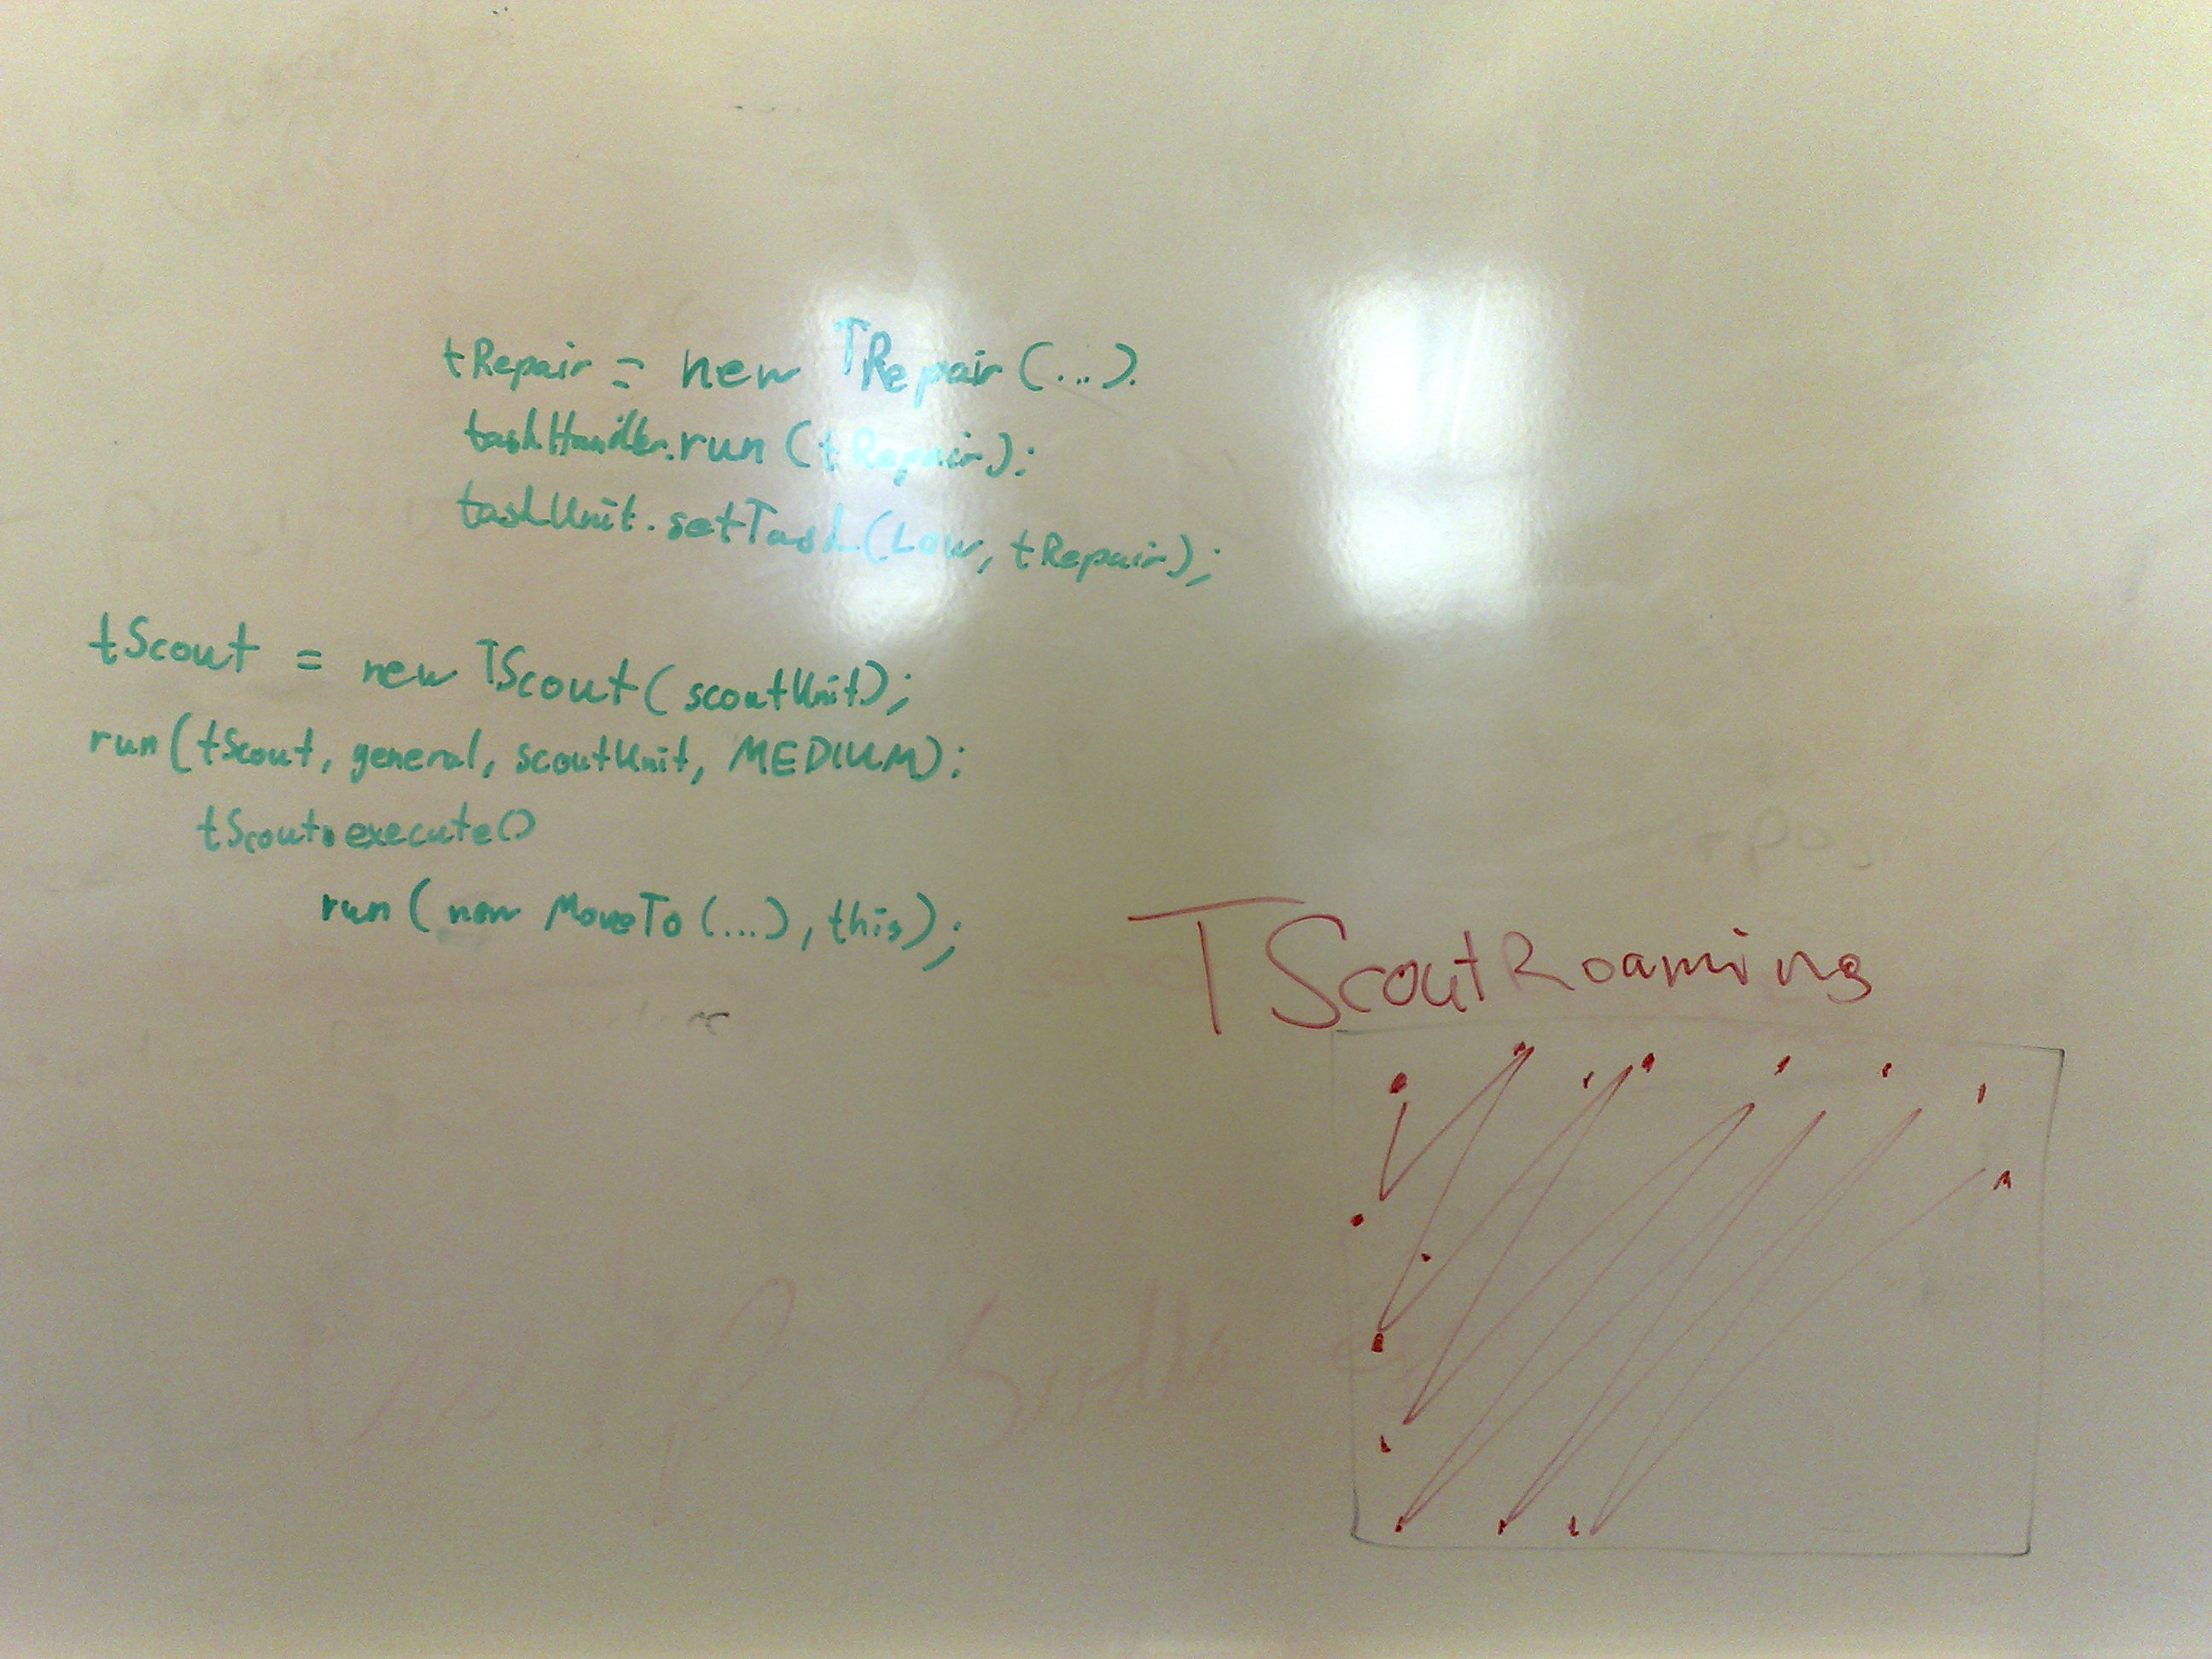 tRepair = new TRepair(...).
taskHandler.run(tRepair);
taskUnit.setTask(Low, tRepair);
tScout = new TScout(scoutUnit);
run(tScout, general, scoutUnit, MEDIUM);
tScout.execute()
run(new MoveTo(...), this);
TScoutRoaming